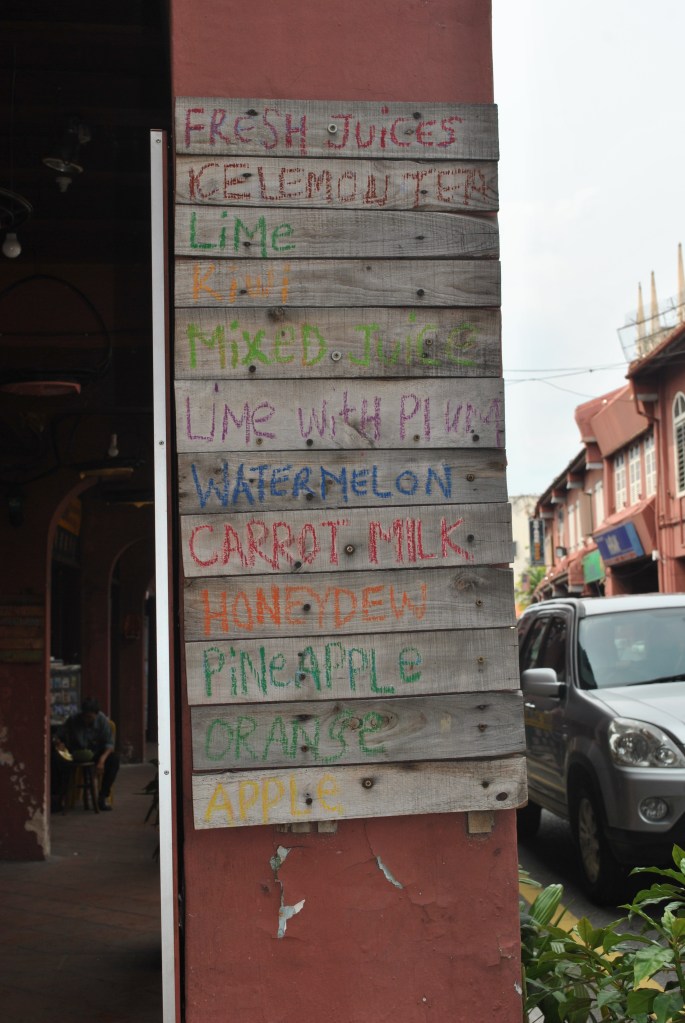 FRESH JUiCES
iCELEMON TEA
LiME
KiWi
MiXED JUiCE
LiME WitH PlUM
WATERMELON
CARROT MILK
HONEYDEW
PiNEAPPLE
ORANGE
APPLE